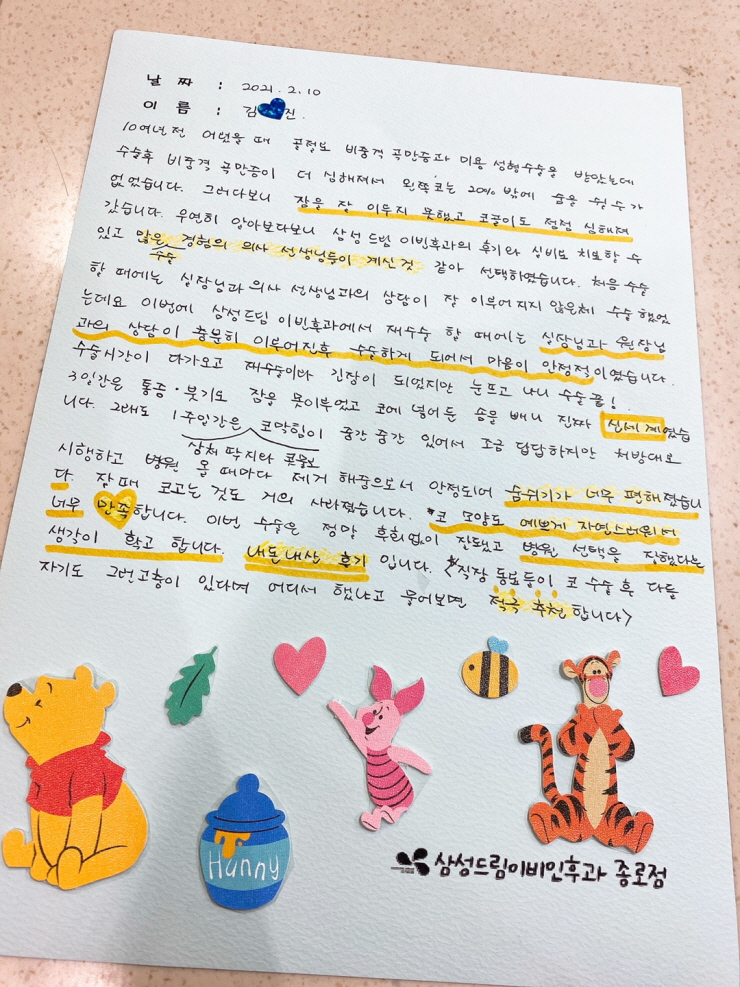 날 짜 : 2021. 2. 10
이 름 : 김 진.
10여년 전 어렸을 때 골절로 비중격 곡만증과 미용 성형수술을 받았는데
수술후 비중격 곡만증이 더 심해져서 왼쪽 코는 20% 밖에 숨을 쉴 수가
없었습니다. 그러다보니 잠을 잘 이루지 못했고 코골이도 점점 심해져
갔습니다. 우연히 알아보다보니 삼성드림 이빈후과의 후기와 실비로 치료할 수
있고 많은 경험의 의사 선생님들이 계신 것 같아 선택하였습니다. 처음 수술
수술
할 때에는 실장님과 의사 선생님과의 상담이 잘 이루어 지지 않은체 수술 했었
는데요 이번에 삼성드림 이빈후과에서 재수술 할 때에는 실장님과 원장님
과의 상담이 충분히 이루어진후 수술하게 되어서 마음이 안정적이였습니다.
수술시간이 다가오고 재수술이라 긴장이 되었지만 눈뜨고 나니 수술 끝!
3일간은 통증·붓기로 잠을 못이루었고 코에 넣어둔 솜을 빼니 진짜 신세계였습
니다. 그래도 1주일간은 코막힘이 중간 중간 있어서 조금 답답하지만 처방대로
상처 딱지와 콧물로
시행하고 병원 올 때마다 제거 해줌으로서 안정되어 숨쉬기가 너무 편해졌습니
다. 잘 때 코고는 것도 거의 사라졌습니다. *코 모양도 예쁘게 자연스러워서
너무 만족합니다. 이번 수술은 정말 후회없이 잘됐고 병원 선택을 잘했다는
생각이 확고 합니다. 내돈내산 후기 입니다. <*직장 동료들이 코 수술 후 다들
자기도 그런고충이 있다며 어디서 했냐고 물어보면 적극 추천합니다>
Hunny
삼성드림이비인후과 종로점